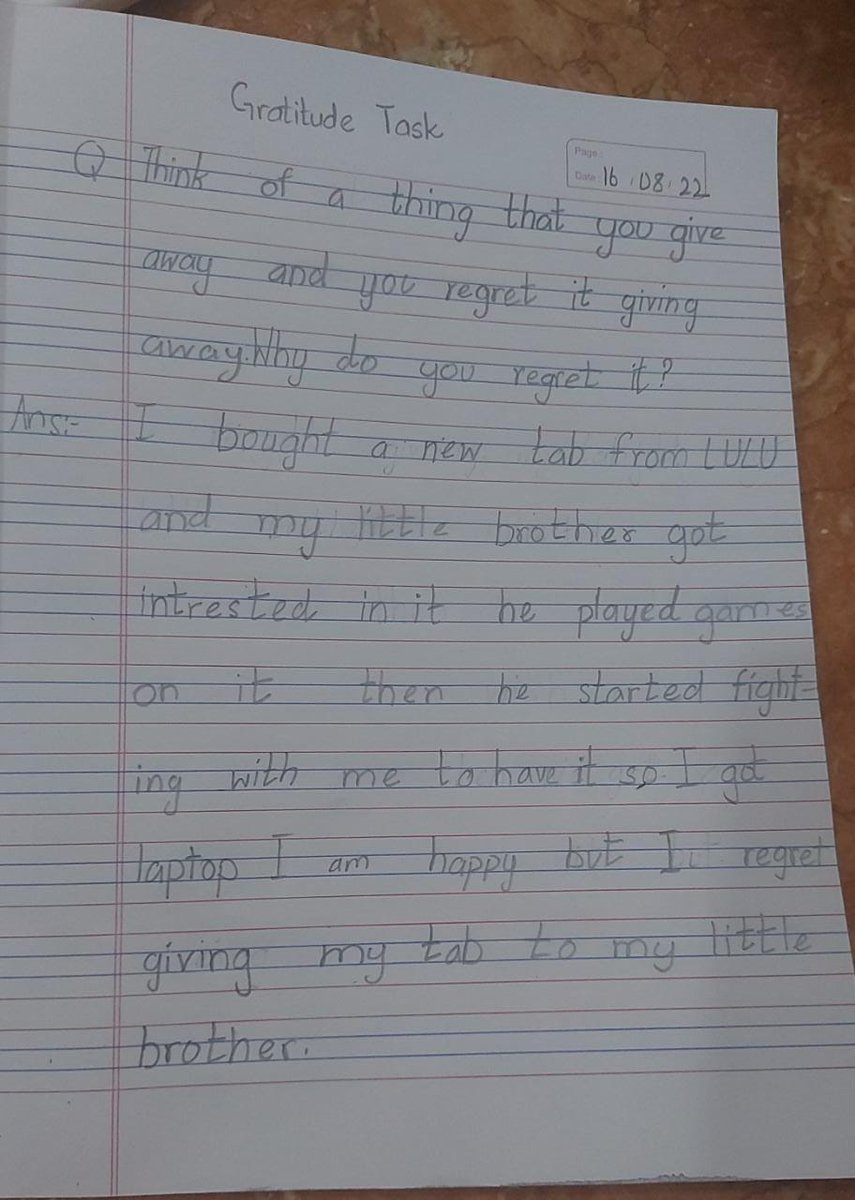 Gratitude Task
Page :
Date: 16.08.22
Q Think of a thing that you give
away and you regret it giving
away.Why do you regret it?
Ans:- I bought a new tab from LULU
and my little brother got
intrested in it he played games
on it then he started fight-
ing with me to have it so I got
laptop I am happy but I regret
giving my tab to my little
brother.